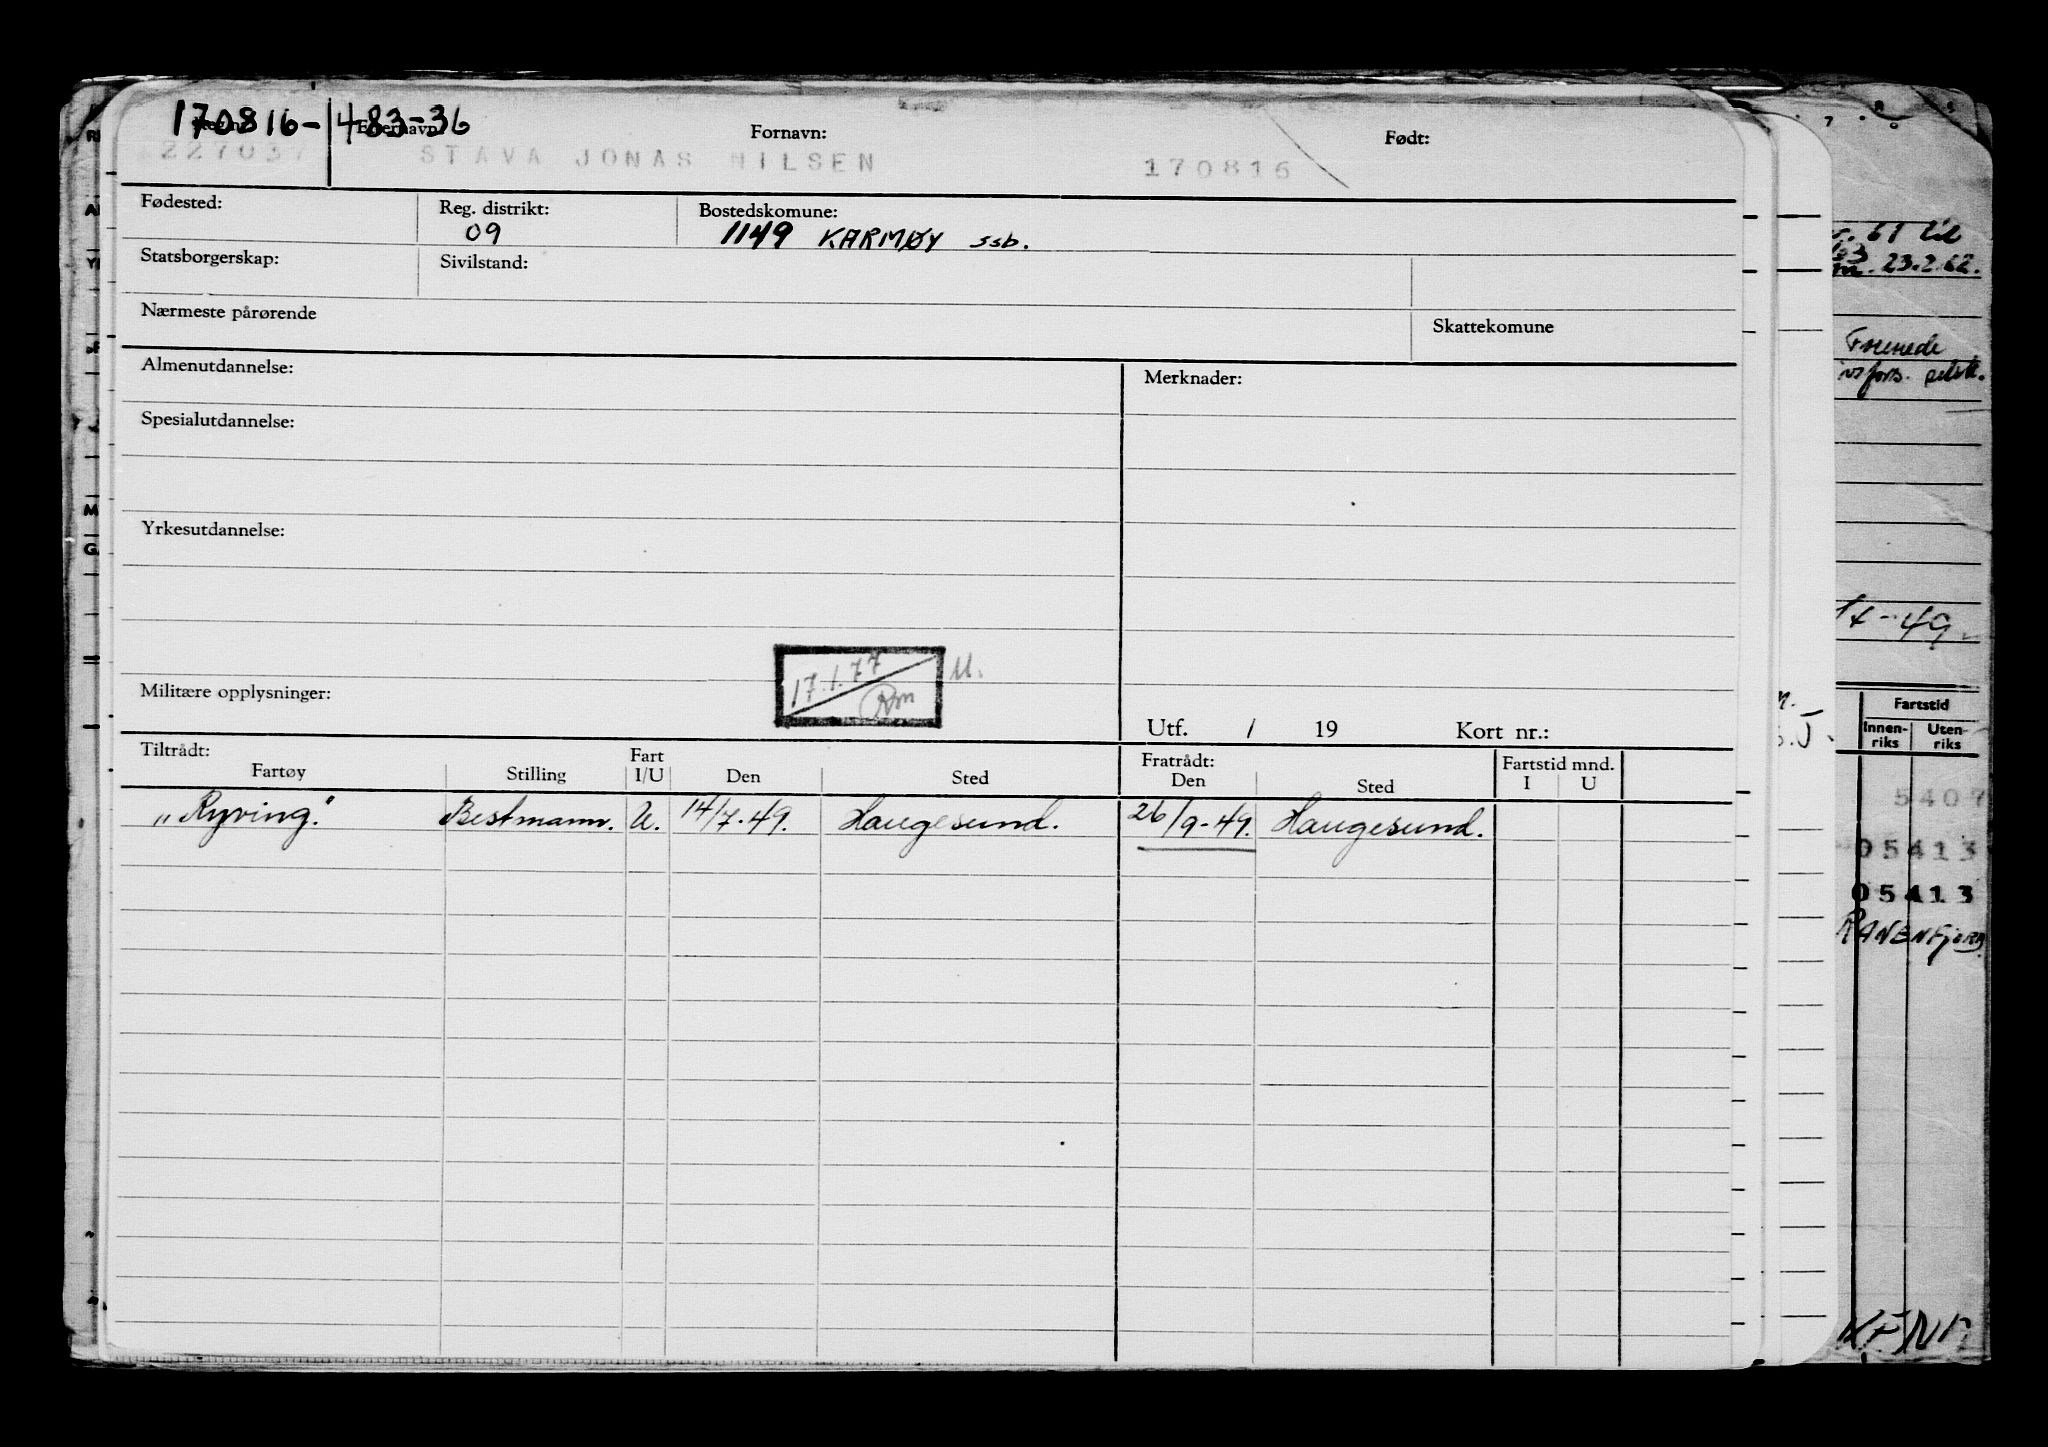 170816-483-36
Etternavn: Fornavn: Født:
STAVA JONAS NILSEN 170816
Fødested: Reg. distrikt: Bostedskomune:
09 1149 KARMØY ssb.
Statsborgerskap: Sivilstand:
Nærmeste pårørende Skattekomune
Almenutdannelse: Merknader:
Spesialutdannelse:
Yrkesutdannelse:
17.1.77 U.
Militære opplysninger:
Utf. / 19 Kort nr.:
Tiltrådt: Fart Fratrådt: Fartstid mnd.
Fartøy Stilling I/U Den Sted Den Sted I U
„Ryving." Bestmann. U. 14/7-49. Haugesund. 26/9-49. Haugesund.
61 til
23.2.62.
49
Fartstid
Innen-riks Uten-riks
5407
05413
05413
RANENFJORD